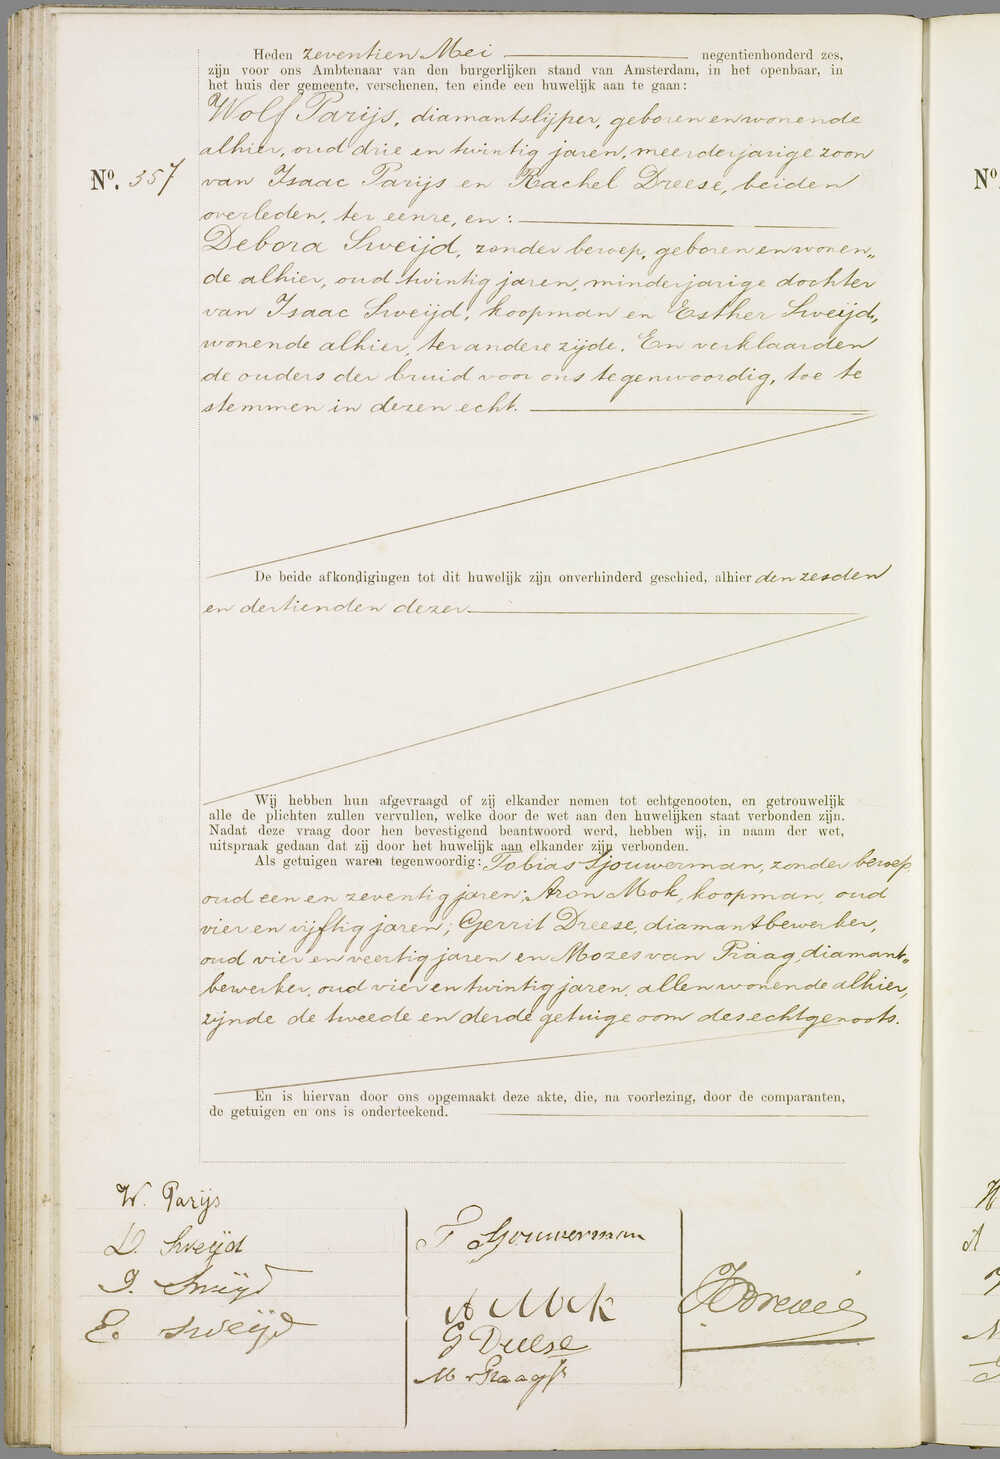 Heden zeventien Mei negentienhonderd zes,
zijn voor ons Ambtenaar van den burgerlijken stand van Amsterdam, in het openbaar, in
het huis der gemeente, verschenen, ten einde een huwelijk aan te gaan:
Nº. 357
Wolf Parijs, diamantslijper, geboren en wonende
alhier, oud drie en twintig jaren, meerderjarige zoon
van Isaac Parijs en Rachel Dreese, beiden
overleden, ter eenre, en:
Debora Sweijd, zonder beroep, geboren en wonen„
de alhier, oud twintig jaren, minderjarige dochter
van Isaac Sweijd, koopman en Esther Sweijd,
wonende alhier, ter andere zijde. En verklaarden
de ouders der bruid voor ons tegenwoordig, toe te
stemmen in dezen echt.
De beide afkondigingen tot dit huwelijk zijn onverhinderd geschied, alhier den zesden
en dertienden dezer
Wij hebben hun afgevraagd of zij elkander nemen tot echtgenooten, en getrouwelijk
alle de plichten zullen vervullen, welke door de wet aan den huwelijken staat verbonden zijn.
Nadat deze vraag door hen bevestigend beantwoord werd, hebben wij, in naam der wet,
uitspraak gedaan dat zij door het huwelijk aan elkander zijn verbonden.
Als getuigen waren tegenwoordig: Tobias Sjouwerman, zonder beroep,
oud een en zeventig jaren; Aron Mok, koopman, oud
vier en vijftig jaren; Gerrit Dreese, diamantbewerker,
oud vier en veertig jaren en Mozes van Praag, diamant„
bewerker, oud vier en twintig jaren, allen wonende alhier,
zijnde de tweede en derde getuige oom des echtgenoots.
En is hiervan door ons opgemaakt deze akte, die, na voorlezing, door de comparanten,
de getuigen en ons is onderteekend.
W. Parijs
D. Sweijd
I. Sweijd
E. Sweijd
T Sjouwerman
A Mok
G Dreese
M v Praag
Nº